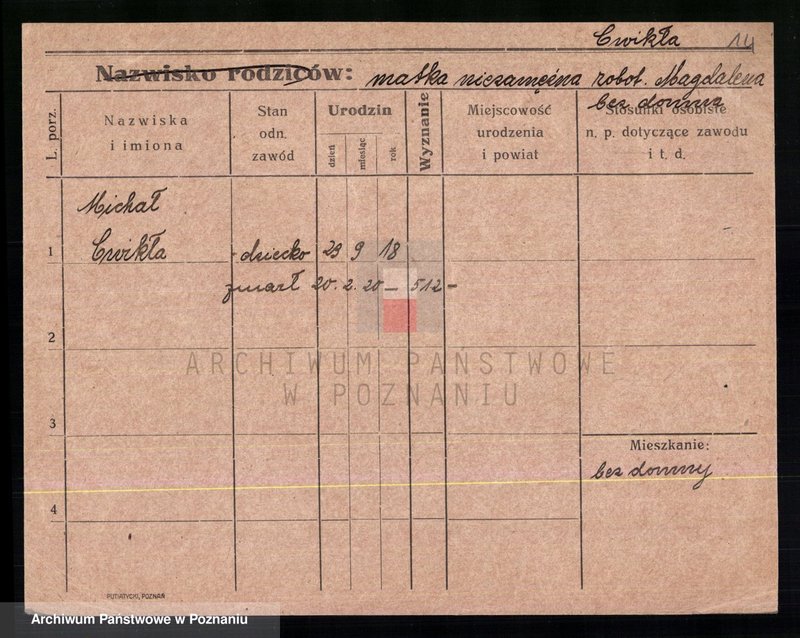 Cwikła 14
Nazwisko rodziców: matka niezamężna robot. Magdalena
bez domny
L. porz.
Nazwiska
i imiona
Stan
odn.
zawód
Urodzin
dzień
miesiąc
rok
Wyznanie
Miejscowość
urodzenia
i powiat
Stosunki osobiste
n. p. dotyczące zawodu
i t. d.
Michał
1 Cwikła dziecko 29 9 18
zmarł 20. 2. 20 — 512 —
2
ARCHIWUM PAŃSTWOWE
W POZNANIU
3
Mieszkanie:
bez domny
4
PUTIATYCKI, POZNAŃ
Archiwum Państwowe w Poznaniu